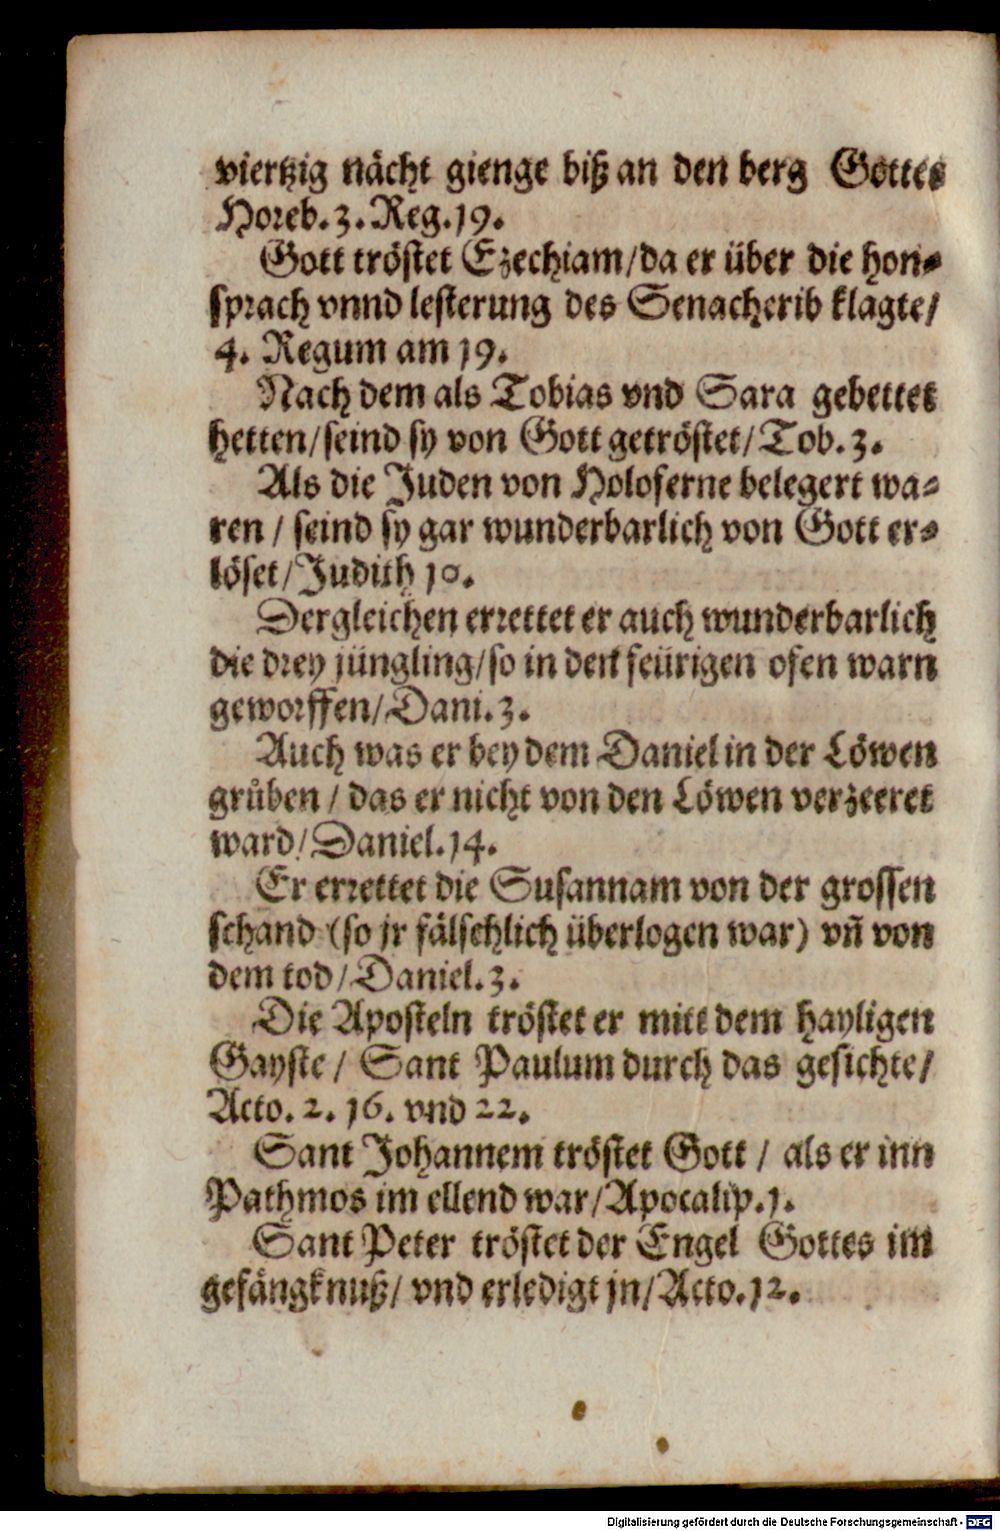 viertzig nächt gienge biß an den berg Gottes
Horeb. 3. Reg. 19.
Gott tröstet Ezechiam/da er über die hon⸗
sprach vnnd lesterung des Senacherib klagte/
4. Regum am 19.
Nach dem als Tobias vnd Sara gebettet
hetten/seind sy von Gott getröstet/Tob. 3.
Als die Juden von Holoferne belegert wa⸗
ren / seind sy gar wunderbarlich von Gott er⸗
löset/Judith 10.
Dergleichen errettet er auch wunderbarlich
die drey jüngling/so in den feürigen ofen warn
geworffen/Dani. 3.
Auch was er bey dem Daniel in der Löwen
grůben / das er nicht von den Löwen verzeeret
ward/Daniel. 14.
Er errettet die Susannam von der grossen
schand (so jr fälschlich überlogen war) vñ von
dem tod/Daniel. 3.
Die Aposteln tröstet er mitt dem hayligen
Gayste / Sant Paulum durch das gesichte/
Acto. 2. 16. vnd 22.
Sant Johannem tröstet Gott / als er inn
Pathmos im ellend war/Apocalip. 1.
Sant Peter tröstet der Engel Gottes im
gefängknuß/ vnd erledigt jn/Acto. 12.
Digitalisierung gefördert durch die Deutsche Forschungsgemeinschaft - DFG